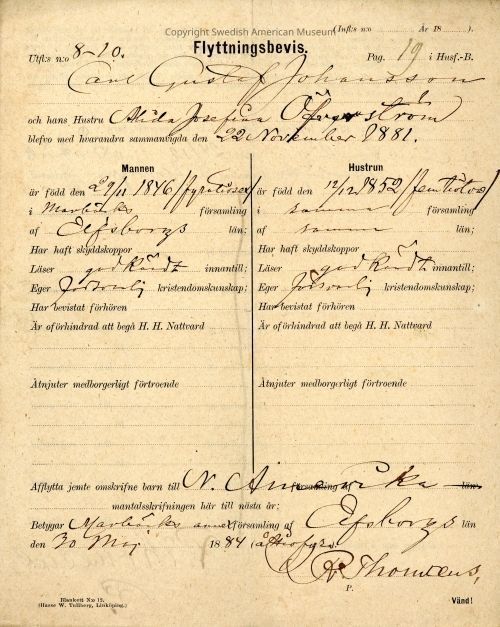 Copyright Swedish American Museum
(Infl:s n:o År 18 ).
Utfl:s n:o 8-10. Flyttningsbevis. Pag. 19 i Husf.-B.
Carl Gustaf Johansson
och hans Hustru Alida Josefina
blefvo med hvarandra sammanvigda den 22 November 1881.
Mannen
är född den 9/11 1846 /fyratiosex/
i Marbäcks församling
af Elfsborgs län;
Har haft skyddskoppor
Läser godkändt innantill;
Eger försvarlig kristendomskunskap;
Har bevistat förhören
Är oförhindrad att begå H. H. Nattvard
Åtnjuter medborgerligt förtroende
Hustrun
är född den 12/12 1852 /femtiotvå/
i samma församling
af samma län;
Har haft skyddskoppor
Läser godkändt innantill;
Eger försvarlig kristendomskunskap;
Har bevistat förhören
Är oförhindrad att begå H. H. Nattvard
Åtnjuter medborgerligt förtroende
Afflytta jemte omskrifne barn till N. Amerika församling af län
mantalsskrifningen här till nästa år;
Betygar Marbäcks annexförsamling af Elfsborgs län
den 30 Maj 1884 (åttiofyra)
P.
Blankett N:o 15.
(Hanse W. Tullberg, Linköping.)
Vänd!